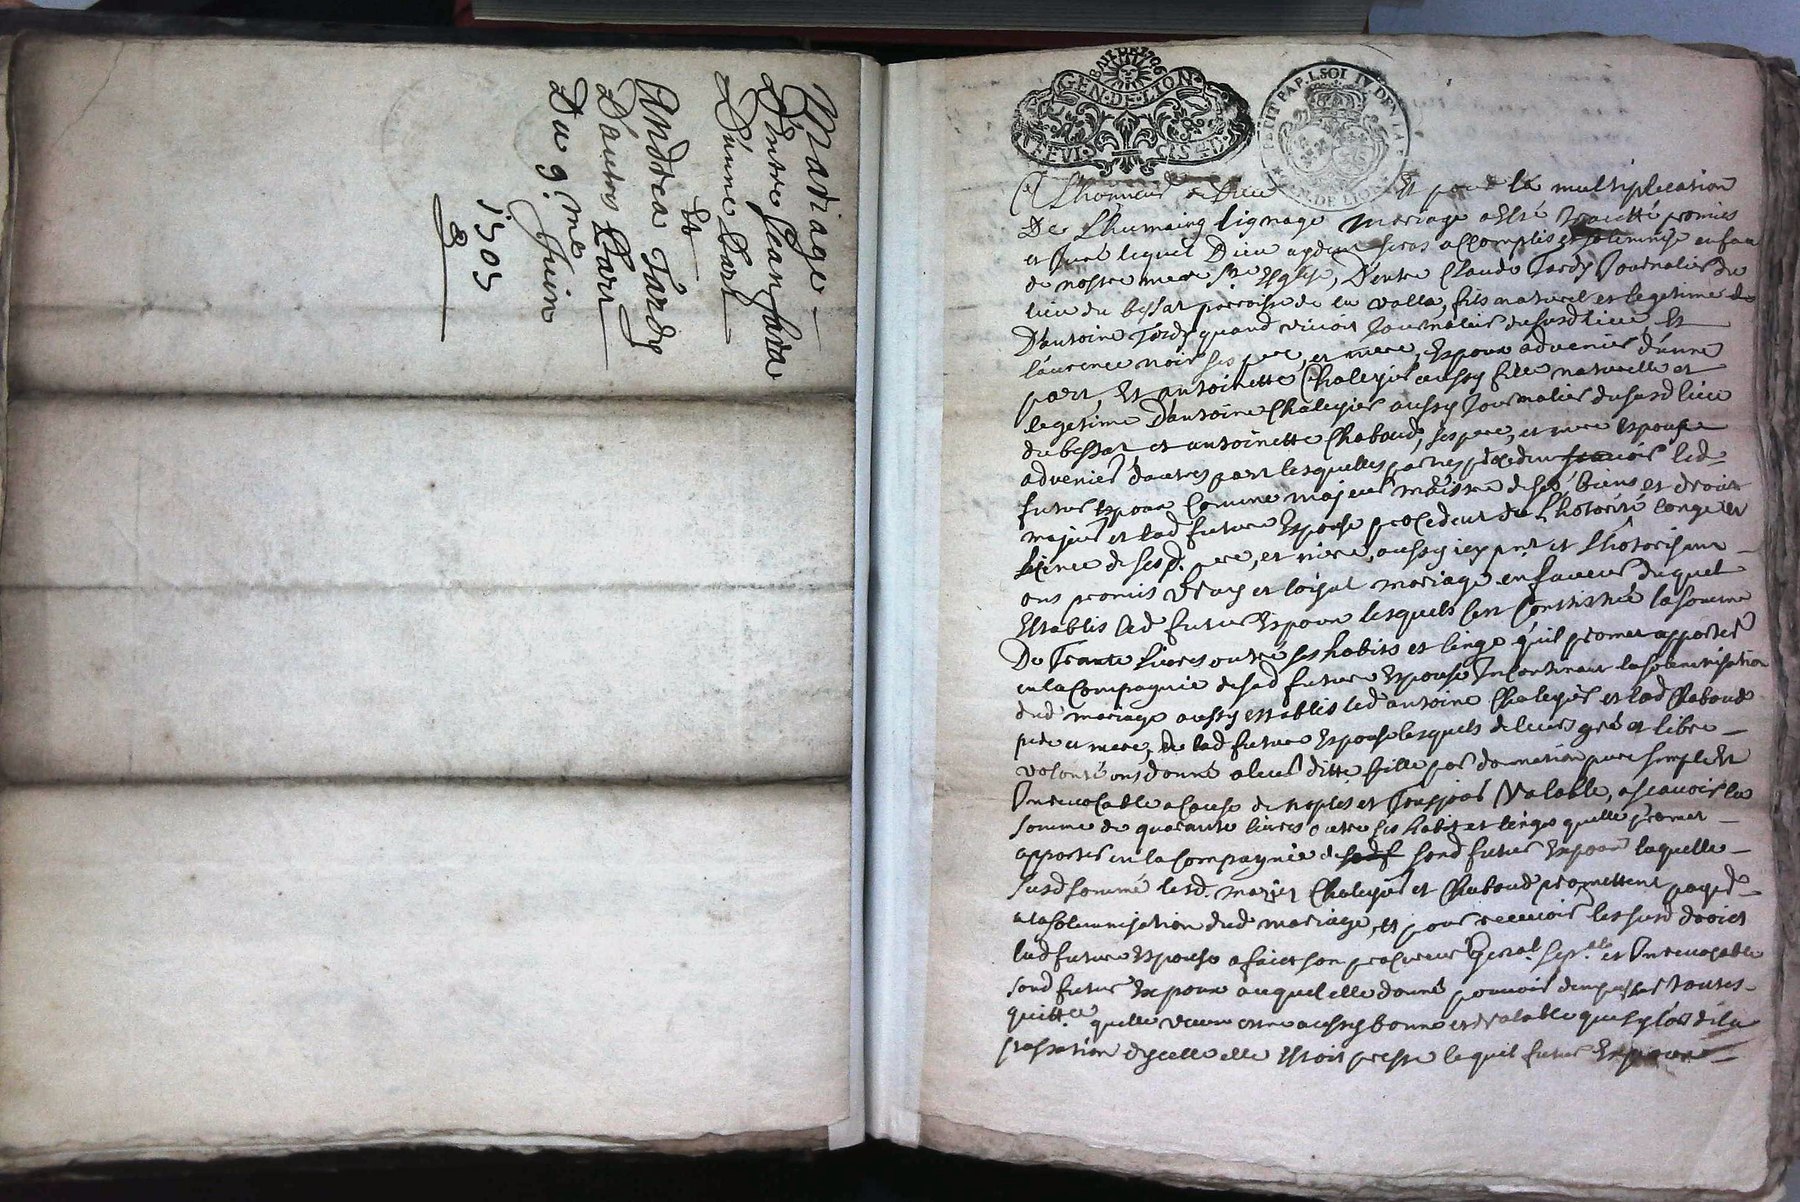 Mariage
D'Entre Jean fara
D'une part
Et
Andrea Tardy
D'autre part
Du 9.me Juin
1705
GEN·DE·LION
GEN.DE LION
A Lhonneur de Dieu Et pour la multiplication
De Lhumaing lignage Mariage a esté traicté promis
et Juré lequel Dieu aydant seras accomplis et solemnise en face
de nostre mere Ste Esglise, D'entre Claude Tardy Journalier du
lieu du bessat parroisse de la valla, fils naturel et legitime de
D'antoine Tardy quand vivoit Journalier dususd lieu, Et
laurence noir ses pere, et mere, Espoux advenir d'une
part, Et antoinette Chaleyer aussy fille naturelle et
legetime D'antoine Chaleyer aussy Journalier dususd lieu
du bessat et antoinette Chaboud, ses pere, et mere Espouse
advenir d'autre part lesquelles parties procedent scavoir led
futur Espoux Comme majeur maistre de ses biens et droits
majeur et lad future Espouse procedent de Lhotorité conge et
licence de sesd. pere, et mere, aussy icy pnt et Lhotorisant
ont promis vray et loyal mariage en faveur duquel
Establis led futur Espoux lesquels sest Constitué la somme
De Trante Livres outre ses habits et linge quil promet apporter
en la Compagnie de sad future Espouse Incontinant la solemnisation
dud mariage aussy establis led antoine Chaleyer et lad Chaboud
pere et mere, de lad future Espouse lesquels de leurs gré et libre
volonté ont donné a leur ditte fille par donnation pure simple Et
Inrevocable a Cause de noples et Tousjours Valable, ascavoir la
somme de quarante livres outre ses habit et linges quelle promet
apporter en la Compagnie de sond futur Espoux laquelle
susd somme lesd. mariez Chaleyer et Chaboud promettent payer
a la solemnisation dud mariage, et pour recevoir les susd droict
lad future Espouse a faict son procureur gneral spal et Inrevocable
sond futur Espoux auquel elle donne pouvoir den passer toutes
quittce quelle veut estre aussy bonne et valable que sy lors de la
passation dycelle elle Estoit presse lequel futur Espoux